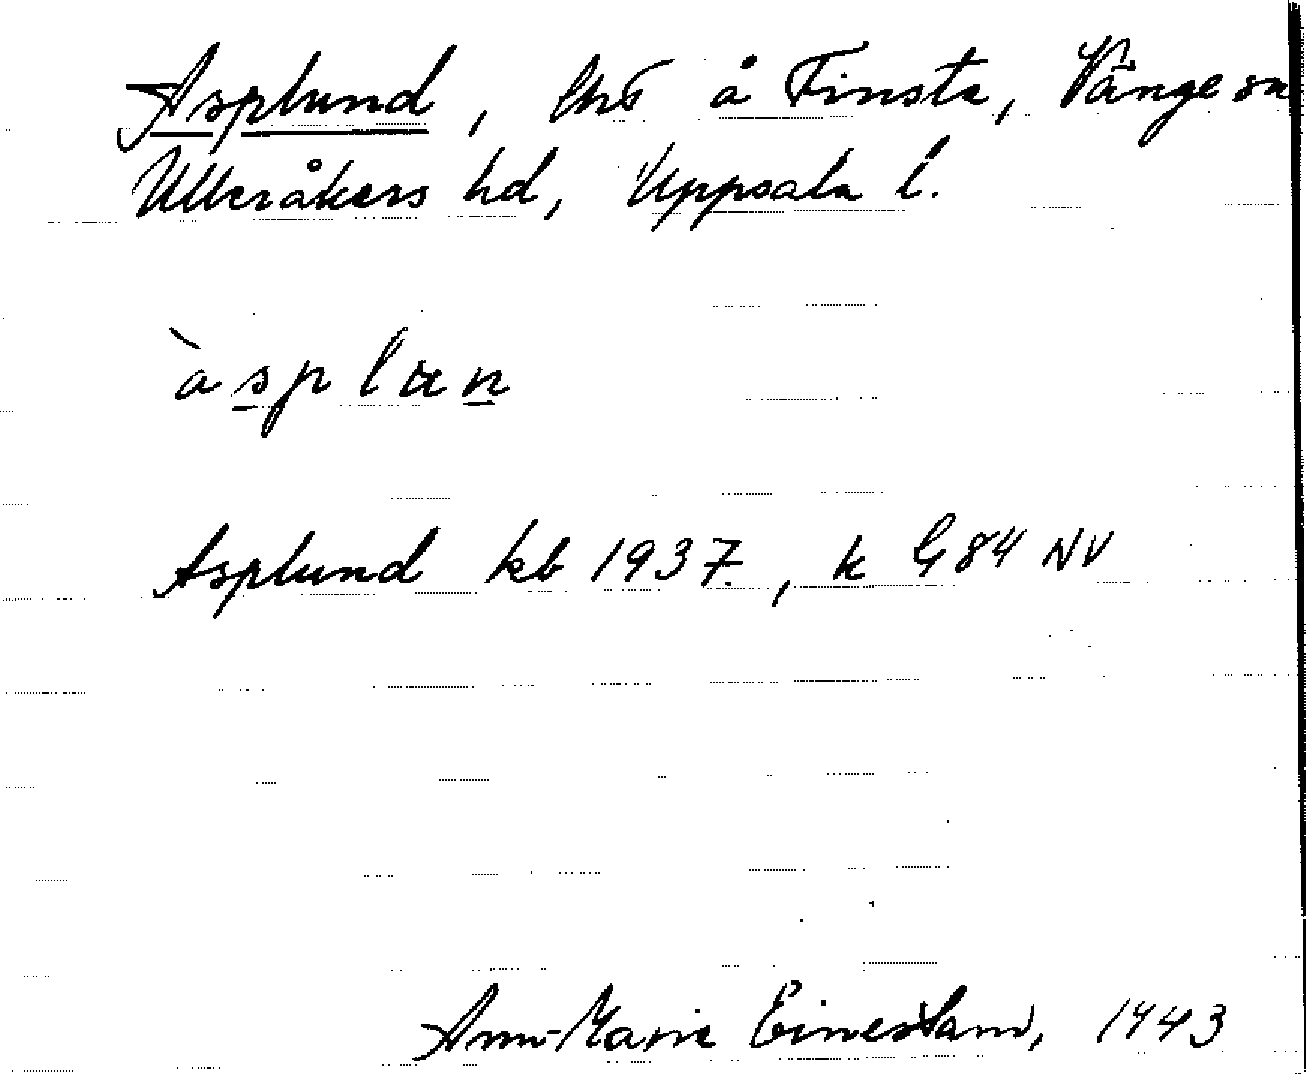 Asplund, lht å Finsta, Vänge sn
Ulleråkers hd, Uppsala l.
àsplan
Asplund kb 1937, k G84 NV
Ann-Marie Einestam, 1943